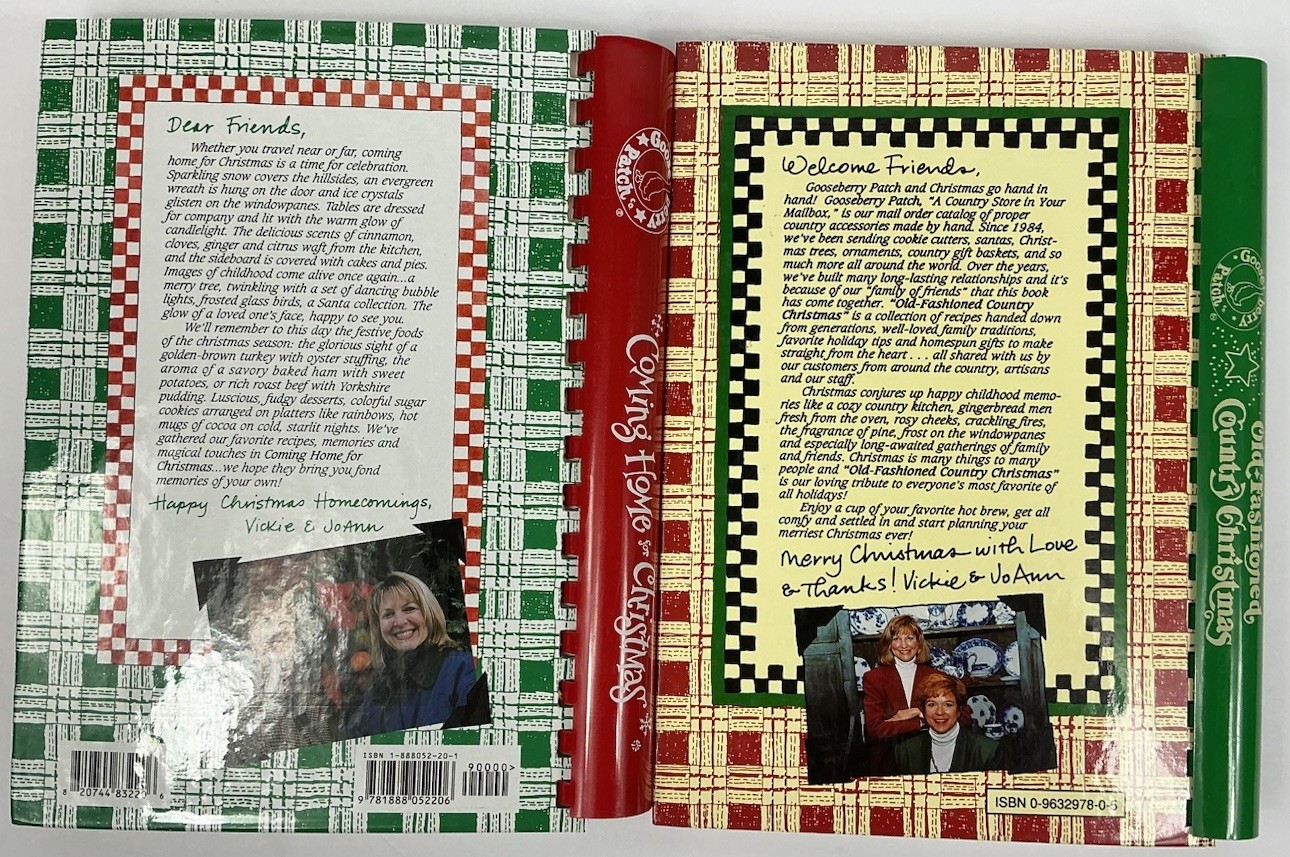 Dear Friends,
Whether you travel near or far, coming
home for Christmas is a time for celebration.
Sparkling snow covers the hillsides, an evergreen
wreath is hung on the door and ice crystals
glisten on the windowpanes. Tables are dressed
for company and lit with the warm glow of
candlelight. The delicious scents of cinnamon,
cloves, ginger and citrus waft from the kitchen,
and the sideboard is covered with cakes and pies.
Images of childhood come alive once again...a
merry tree, twinkling with a set of dancing bubble
lights, frosted glass birds, a Santa collection. The
glow of a loved one's face, happy to see you.
We'll remember to this day the festive foods
of the christmas season: the glorious sight of a
golden-brown turkey with oyster stuffing, the
aroma of a savory baked ham with sweet
potatoes, or rich roast beef with Yorkshire
pudding. Luscious, fudgy desserts, colorful sugar
cookies arranged on platters like rainbows, hot
mugs of cocoa on cold, starlit nights. We've
gathered our favorite recipes, memories and
magical touches in Coming Home for
Christmas...we hope they bring you fond
memories of your own!
Happy Christmas Homecomings,
Vickie & JoAnn
8 20744 8322 6
ISBN 1-888052-20-1
90000>
9 781888 052206
Gooseberry Patch ®
Coming Home for Christmas
Welcome Friends,
Gooseberry Patch and Christmas go hand in
hand! Gooseberry Patch, "A Country Store in Your
Mailbox," is our mail order catalog of proper
country accessories made by hand. Since 1984,
we've been sending cookie cutters, santas, Christ-
mas trees, ornaments, country gift baskets, and so
much more all around the world. Over the years,
we've built many long-lasting relationships and it's
because of our "family of friends" that this book
has come together. "Old-Fashioned Country
Christmas" is a collection of recipes handed down
from generations, well-loved family traditions,
favorite holiday tips and homespun gifts to make
straight from the heart . . . all shared with us by
our customers from around the country, artisans
and our staff.
Christmas conjures up happy childhood memo-
ries like a cozy country kitchen, gingerbread men
fresh from the oven, rosy cheeks, crackling fires,
the fragrance of pine, frost on the windowpanes
and especially long-awaited gatherings of family
and friends. Christmas is many things to many
people and "Old-Fashioned Country Christmas"
is our loving tribute to everyone's most favorite of
all holidays!
Enjoy a cup of your favorite hot brew, get all
comfy and settled in and start planning your
merriest Christmas ever!
Merry Christmas with Love
& Thanks! Vickie & JoAnn
ISBN 0-9632978-0-6
Gooseberry Patch ®
Old-Fashioned
Country Christmas